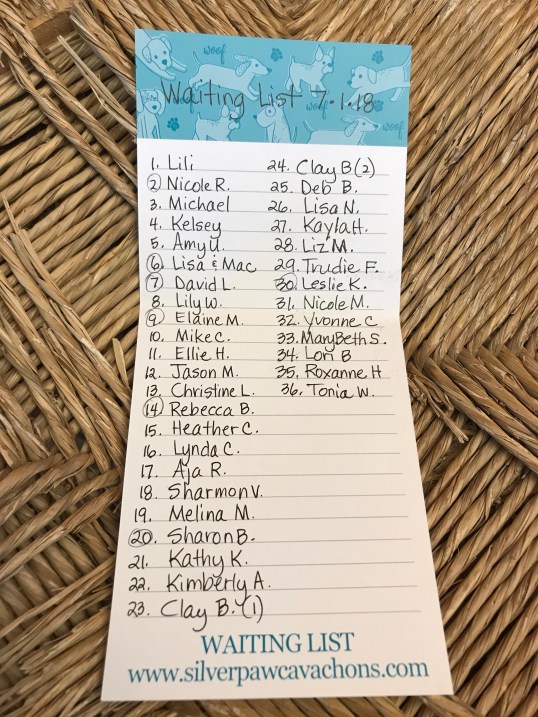 woof
woof
woof
Waiting List 7-1-18
1. Lili
2 Nicole R.
3. Michael
4. Kelsey
5. Amy U.
6. Lisa & Mac
7 David L.
8. Lily W.
9 Elaine M.
10. Mike C.
11. Ellie H.
12. Jason M.
13. Christine L.
14 Rebecca B.
15. Heather C.
16. Lynda C.
17. Aja R.
18. Sharmon V.
19. Melina M.
20. Sharon B.
21. Kathy K.
22. Kimberly A.
23. Clay B. (1)
24. Clay B (2)
25. Deb B.
26. Lisa N.
27. Kayla H.
28. Liz M.
29. Trudie F.
30. Leslie K.
31. Nicole M.
32. Yvonne C
33. MaryBeth S.
34. Lori B
35. Roxanne H
36. Tonia W.
WAITING LIST
www.silverpawcavachons.com